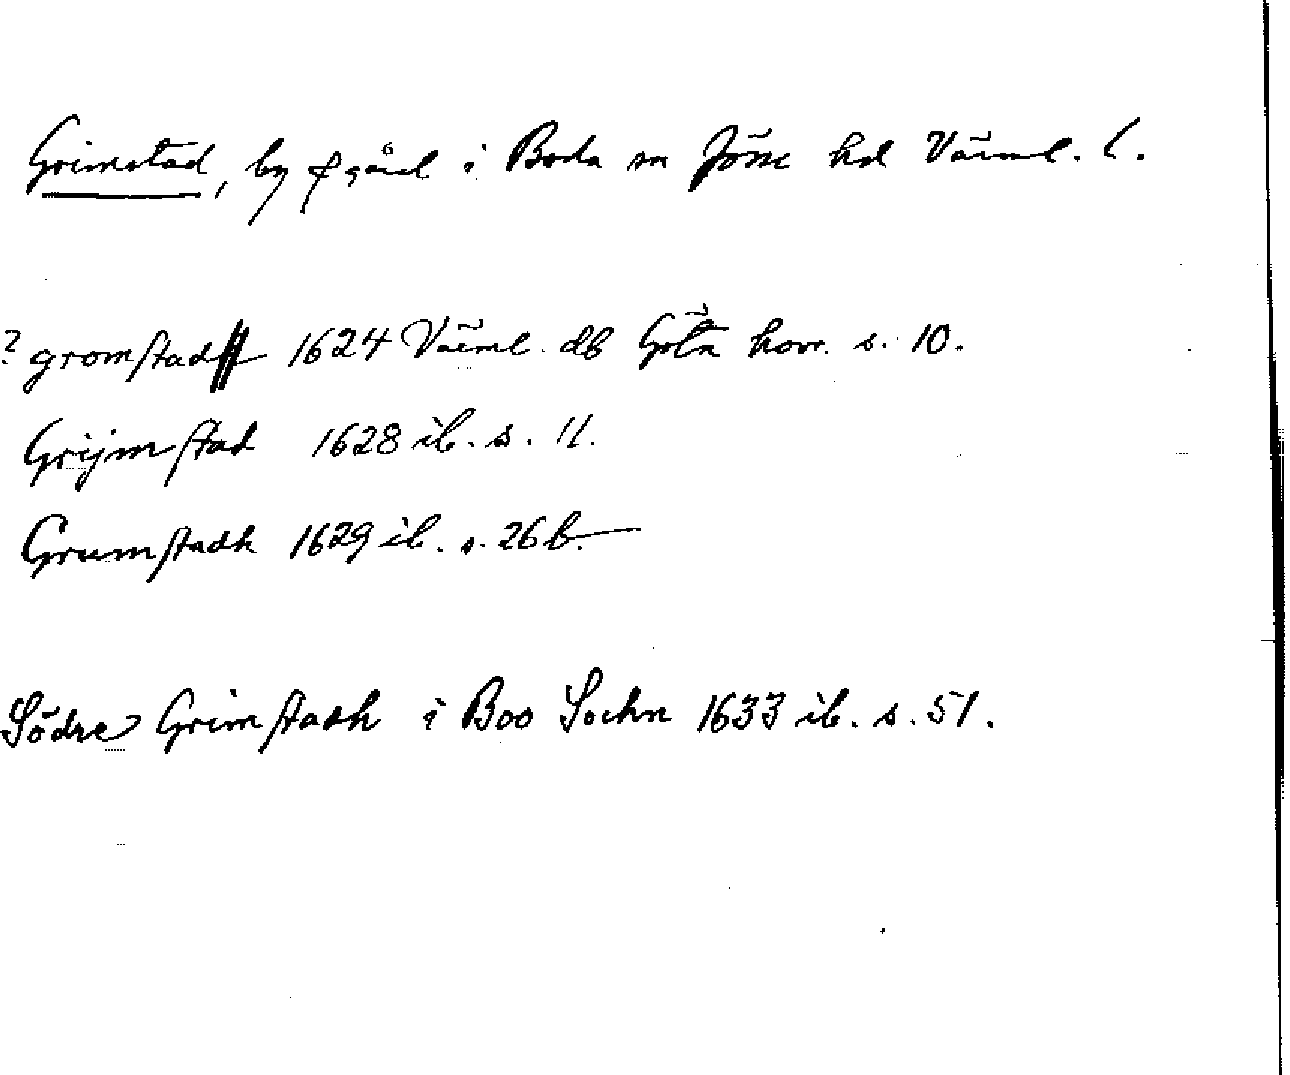 Grimstad, by o gård i Boda sn Jösse hd Värml. l.
? gromstad 1624 Värml. db Göta hovr. s. 10.
Grijmstad 1628 ib. s. 11.
Grumstadh 1629 ib. s. 26 b.
Södre Grimstadh i Boo Sochn 1633 ib. s. 51.